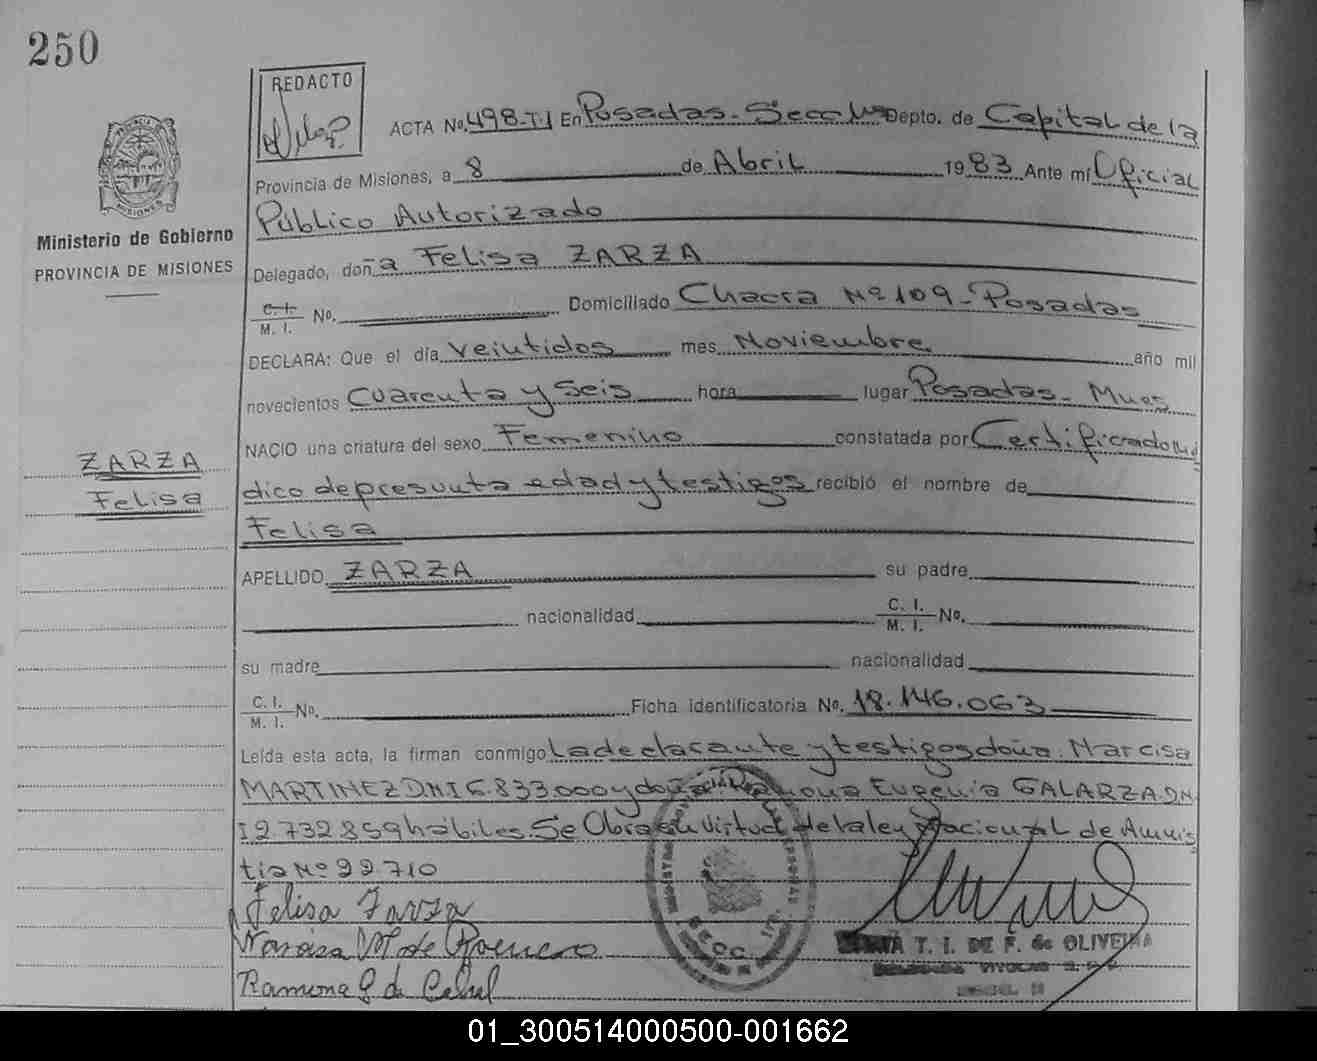 250
REDACTO
ACTA No. 498-T.I En Posadas - Secc Depto. de Capital de la
Provincia de Misiones, a 8 de Abril 1983 Ante mí Oficial
Público Autorizado
Ministerio de Gobierno
PROVINCIA DE MISIONES
Delegado, doña Felisa ZARZA
C. I.
M. I. No. Domiciliado Chacra Nº 109 - Posadas
DECLARA: Que el día veintidos mes Noviembre año mil
novecientos cuarenta y seis hora lugar Posadas - Mnes
NACIO una criatura del sexo Femenino constatada por Certificado mé
ZARZA
Felisa
dico de presunta edad y testigos recibió el nombre de
Felisa
APELLIDO ZARZA su padre
nacionalidad C. I.
M. I. No.
su madre nacionalidad
C. I.
M. I. No. Ficha identificatoria No. 18.146.063
Leída esta acta, la firman conmigo La declarante y testigos doña Narcisa
MARTINEZ D.N.I 6.833.000 y doña Ramona Eugenia GALARZA D.N.
I 2.732.859 hábiles. Se Obra en virtud de la ley Nacional de Amnis
tia Nº 22.710
Felisa Zarza
Narcisa M de
Ramona G de
T. I. DE F. de OLIVEIRA
01_300514000500-001662